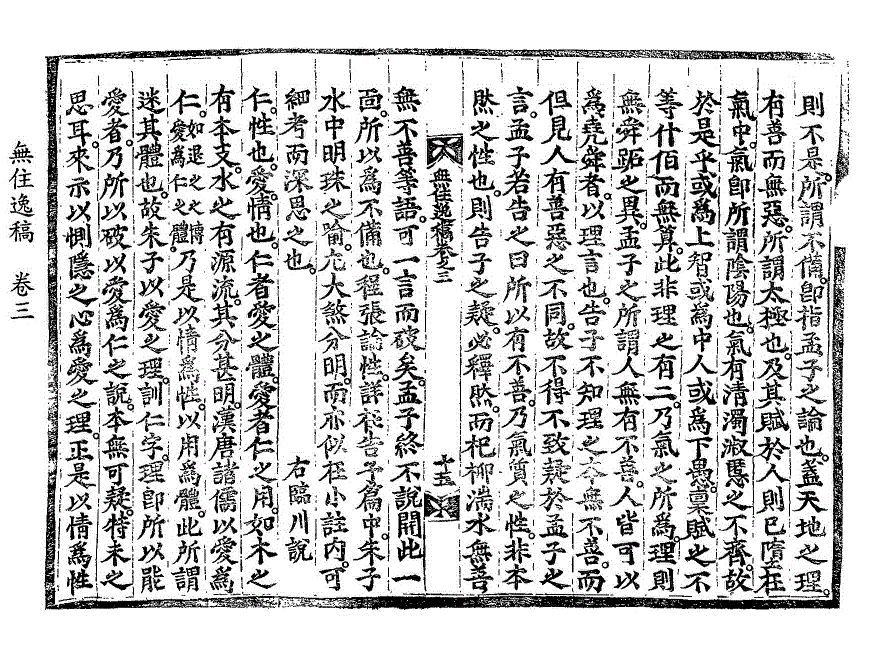 則不是所謂不備卽指孟子之論也盖天地之理
有善而無惡所謂太極也及其賦於人則已墮在
氣中氣卽所謂陰陽也氣有清濁淑慝之不齊故
於是乎或爲上智或爲中人或爲下愚稟賦之不
等什佰而無算此非理之有二乃氣之所爲理則
無舜跖之異孟子之所謂人無有不善人皆可以
爲堯舜者以理言也告子不知理之本無不善而
但見人有善惡之不同故不得不致疑於孟子之
言孟子若告之曰所以有不善乃氣質之性非本
然之性也則告子之疑必釋然而杞柳湍水無善
無住逸稿卷之三
十五
無不善等語可一言而破矣孟子終不說開此一
面所以爲不備也程張論性詳於告子篇中朱子
水中明珠之喻尤大煞分明而亦似在小註內可
細考而深思之也
右臨川說
仁性也愛情也仁者愛之體愛者仁之用如木之
有本支水之有源流其分甚明漢唐諸儒以愛爲
仁如退之之博愛爲仁之體乃是以情爲性以用爲體此所謂
迷其體也故朱子以愛之理訓仁字理卽所以能
愛者乃所以破以愛爲仁之說本無可疑特未之
思耳來示以惻隱之心爲愛之理正是以情爲性
無住逸稿 卷三